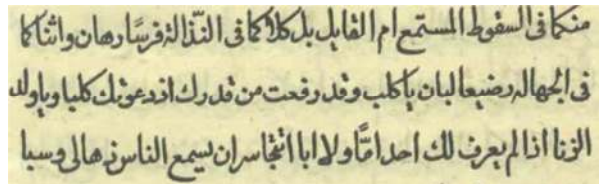 منكما فى السقوط المستمع ام القايل بل كلاكما فى النذالة فرسا رهان واثناكما
فى الجهاله رضيعا لبان ياكلب وقد رفعت من قدرك اذ دعوتك كلبا وياولد
الزنا اذا لم يعرف لك احد امًّا ولا ابا اتجاسر ان يسمع الناس